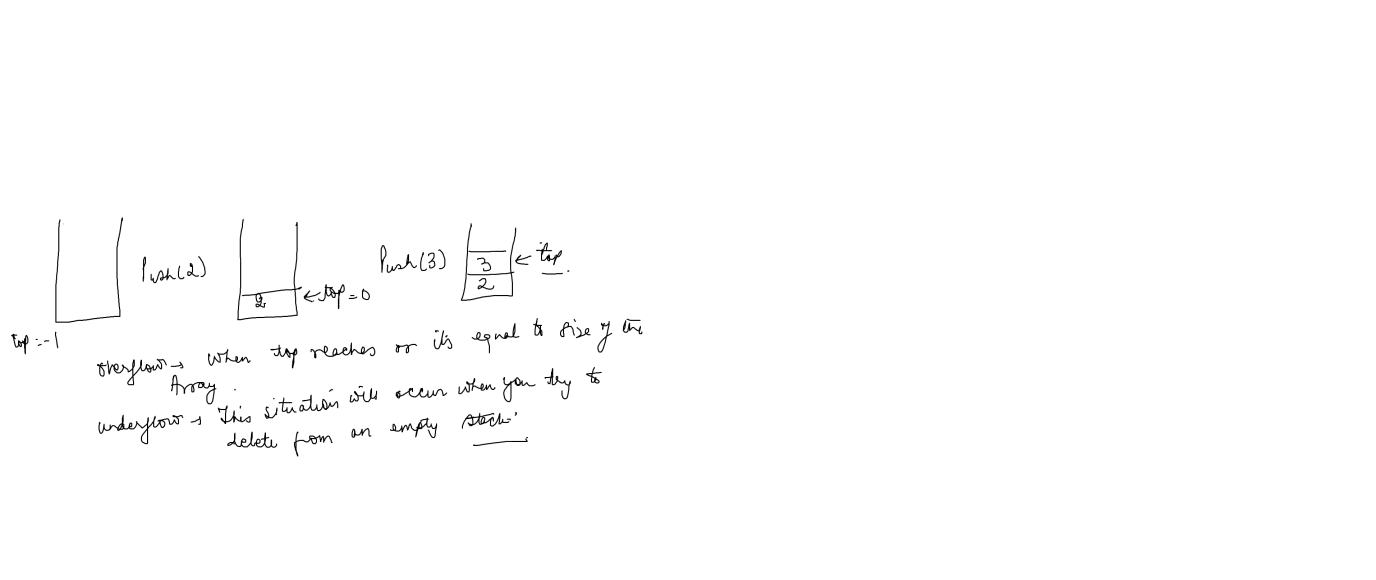 Push(2)
2
←top=0
Push(3)
3
2
← top.
top=-1
overflow→ when top reaches or it's equal to size of the
Array.
underflow→ This situation will occur when you try to
delete from an empty stack.